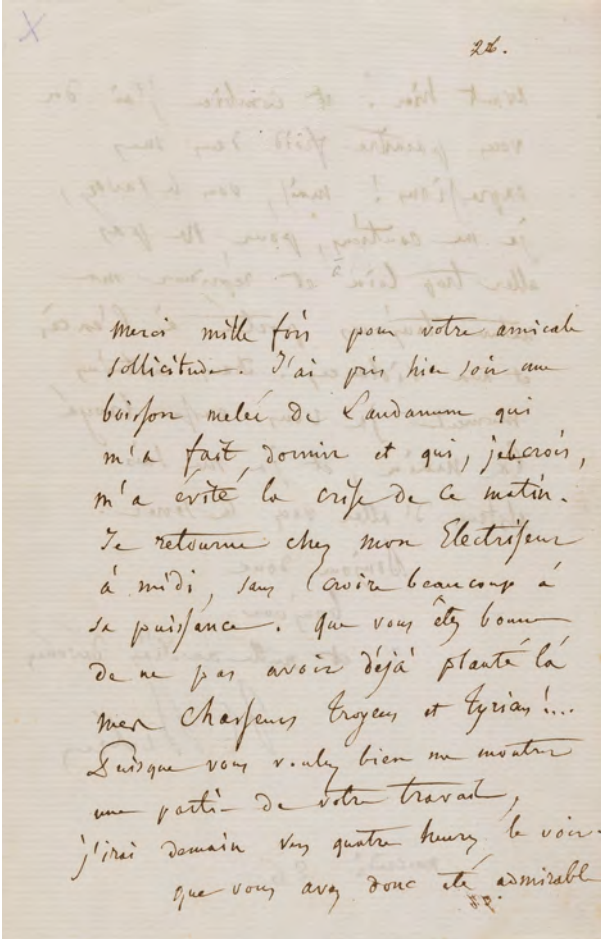 28.
Merci mille fois pour votre amicale
sollicitude. J'ai pris hier soir une
boisson melée de Laudanum qui
m'a fait dormir et qui, je le crois,
m'a évité la crise de ce matin.
Je retourne chez mon Electriseur
à midi, sans croire beaucoup à
sa puissance. Que vous êtes bonne
de ne pas avoir déjà planté là
mes Chasseurs troyens et tyriens!...
Puisque vous voulez bien me montrer
une partie de votre travail,
j'irai demain vers quatre heures le voir.
que vous avez donc été admirable